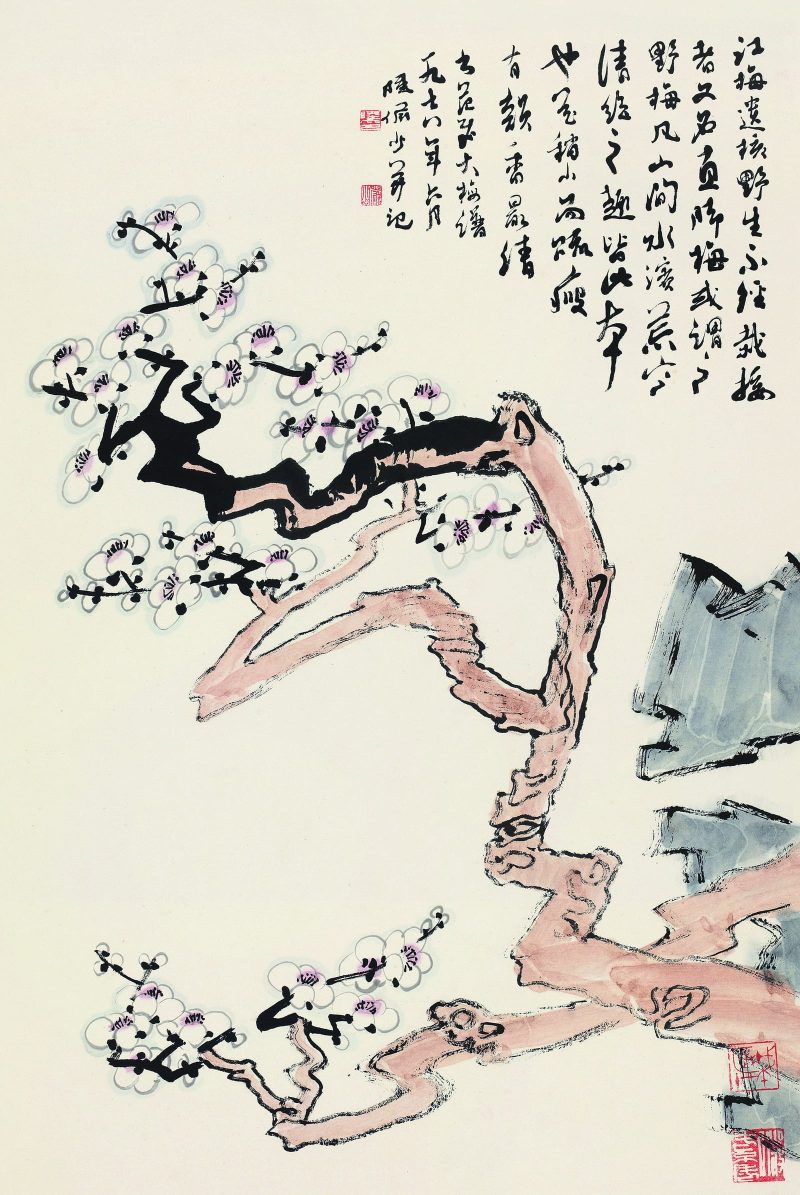 江梅遺核野生不經栽接
者又名直脚梅或謂之
野梅凡山間水濱荒寒
清絶之趣皆此本
也花稍小而疏瘦
有韻香最清
書范成大梅譜
一九七八年六月
陸儼少并記